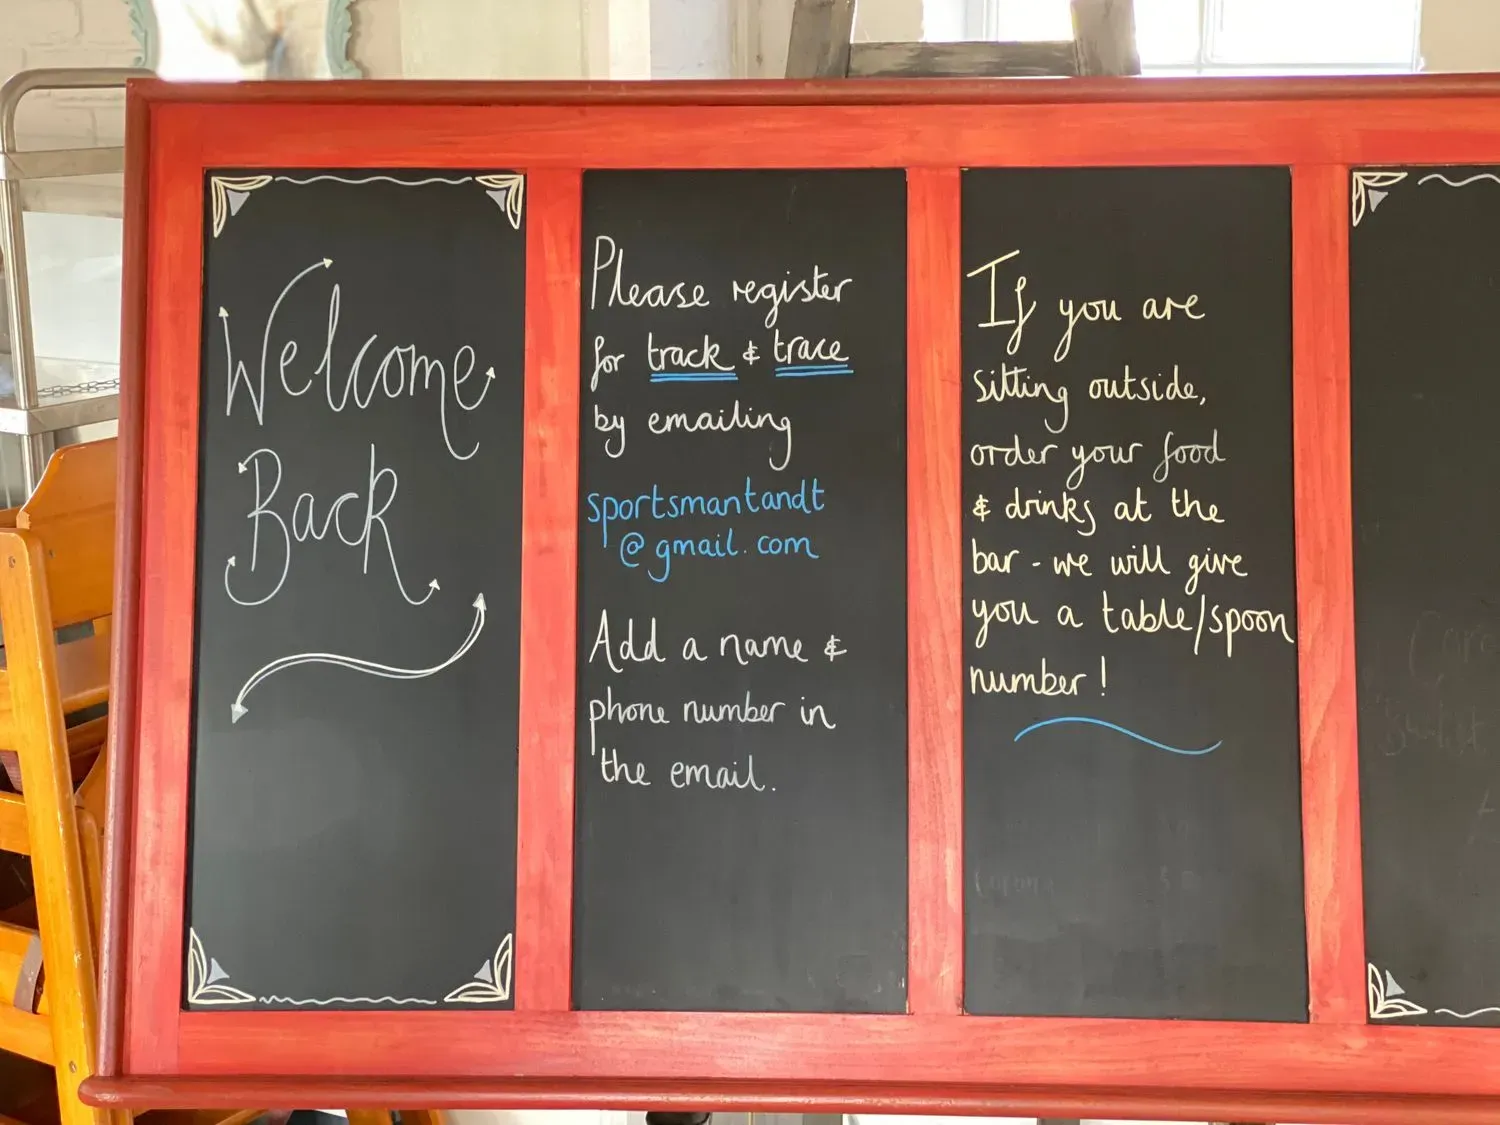 Welcome
Back
Please register
for track & trace
by emailing
sportsmantandt
@gmail.com
Add a name &
phone number in
the email.
If you are
sitting outside,
order your food
& drinks at the
bar - we will give
you a table/spoon
number!